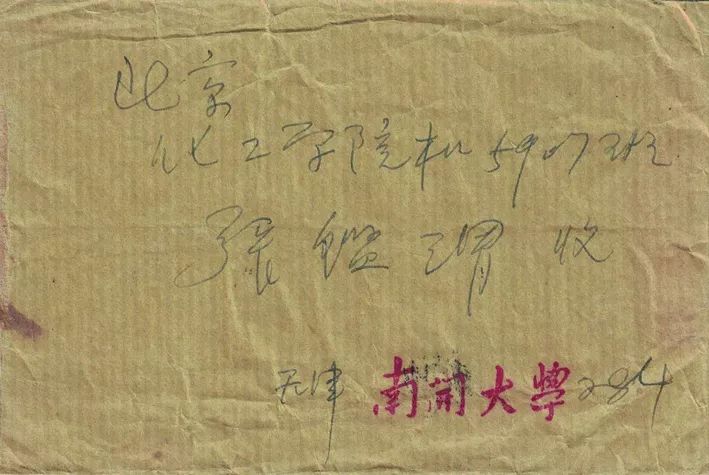 北京
化工学院机5907班
张鑑渭收
天津南開大學284